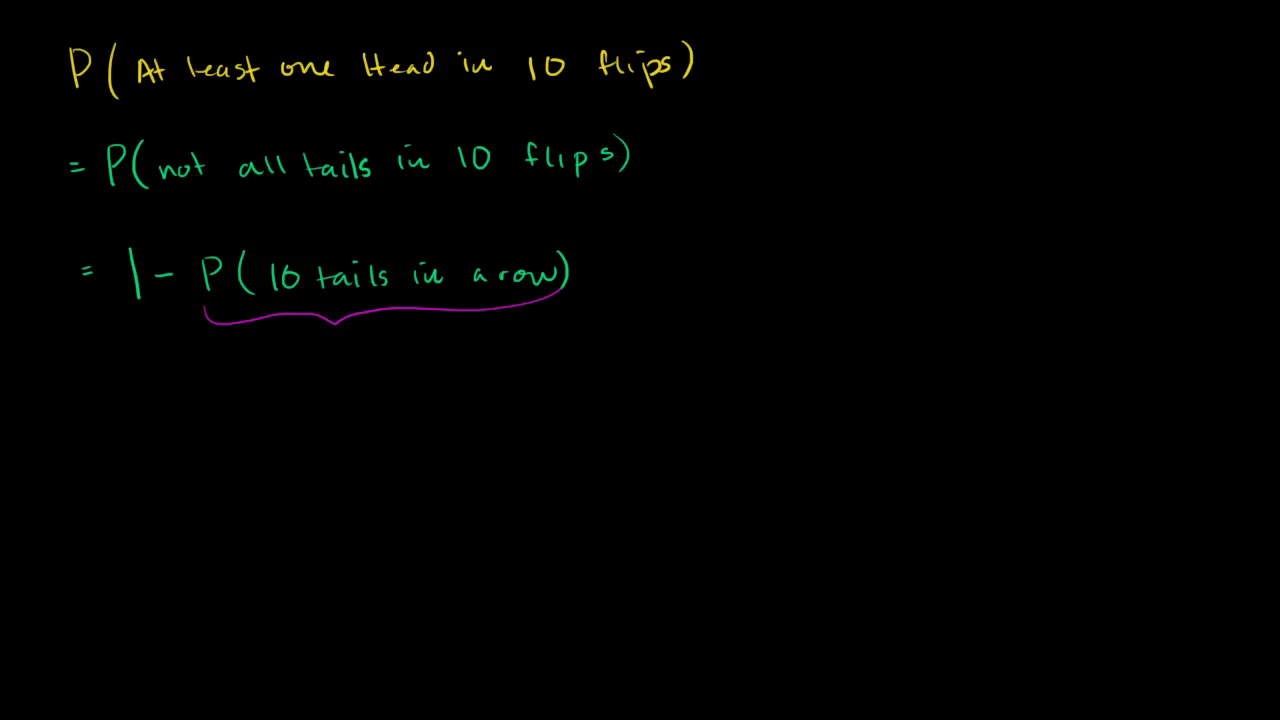 P(At least one Head in 10 flips)
= P(not all tails in 10 flips)
= 1 - P(10 tails in a row)